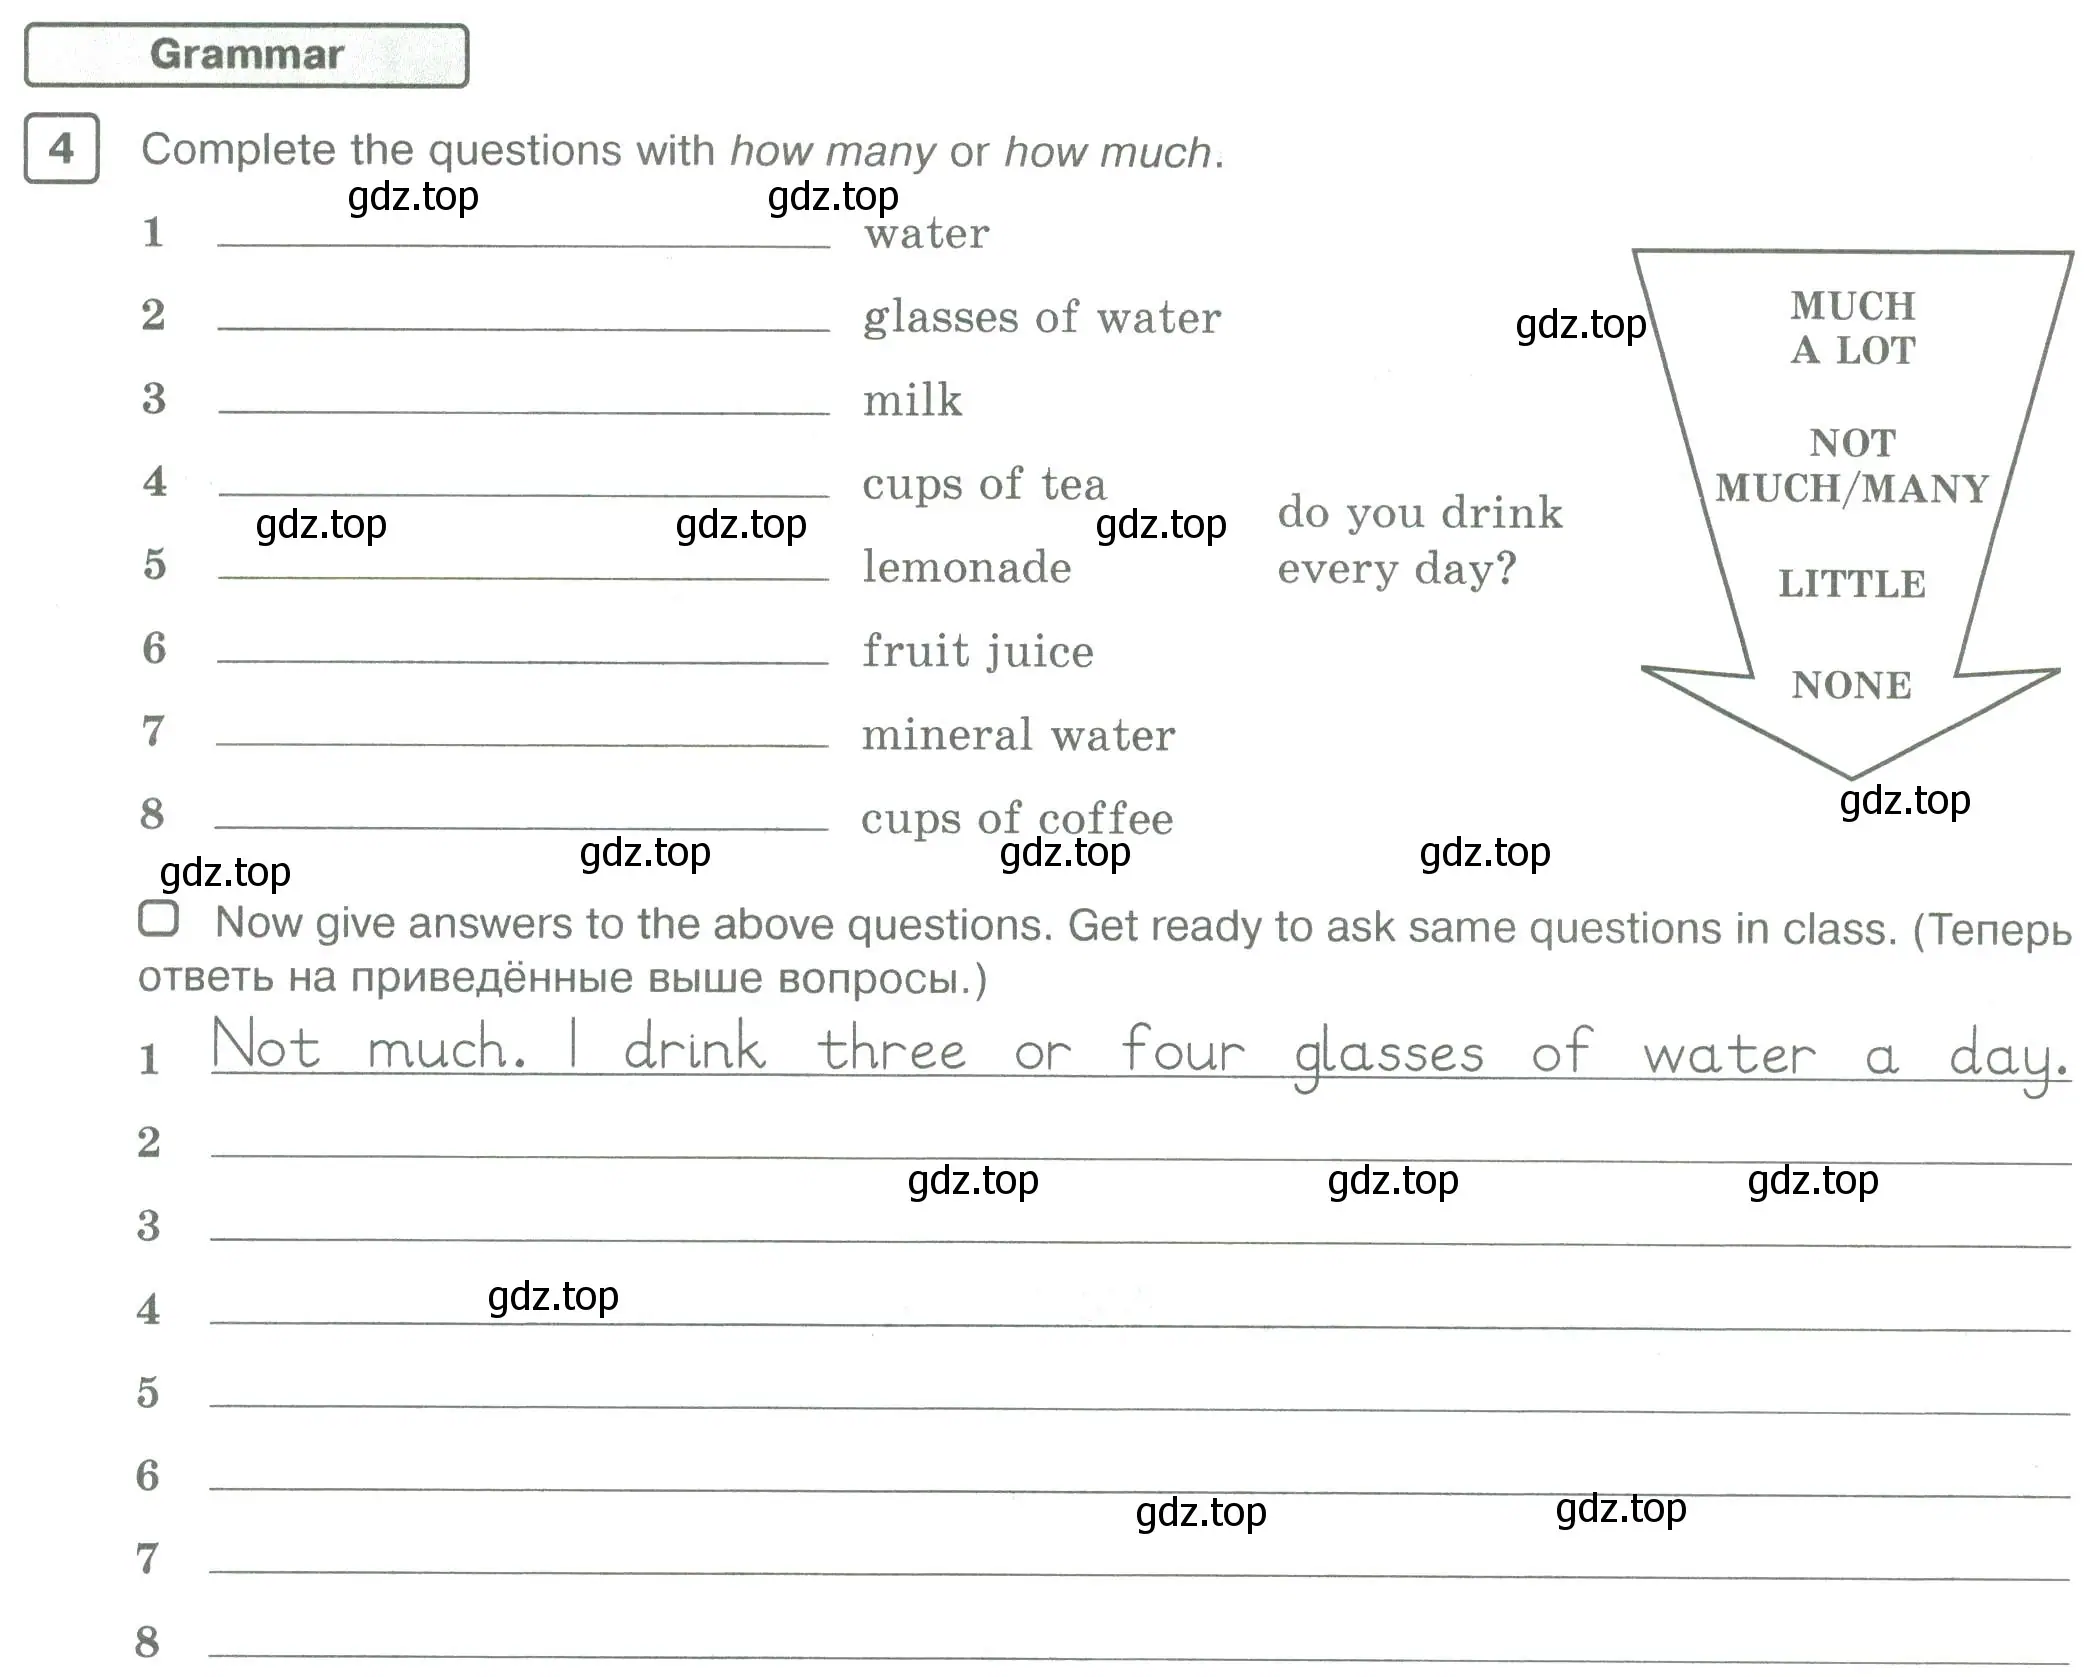 Grammar
4 Complete the questions with how many or how much.
gdz.top gdz.top
1 water
2 glasses of water
3 milk
4 cups of tea
gdz.top gdz.top gdz.top
5 lemonade
6 fruit juice
7 mineral water
8 cups of coffee
do you drink
every day?
gdz.top
MUCH
A LOT
NOT
MUCH/MANY
LITTLE
NONE
gdz.top
gdz.top gdz.top gdz.top gdz.top
Now give answers to the above questions. Get ready to ask same questions in class. (Теперь
ответь на приведённые выше вопросы.)
1 Not much. I drink three or four glasses of water a day.
2
gdz.top gdz.top gdz.top
3
gdz.top
4
5
6
gdz.top gdz.top
7
8